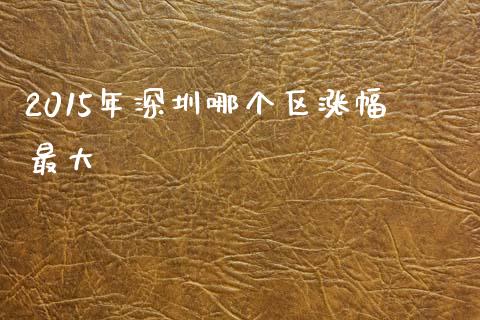 2015年深圳哪个区涨幅
最大